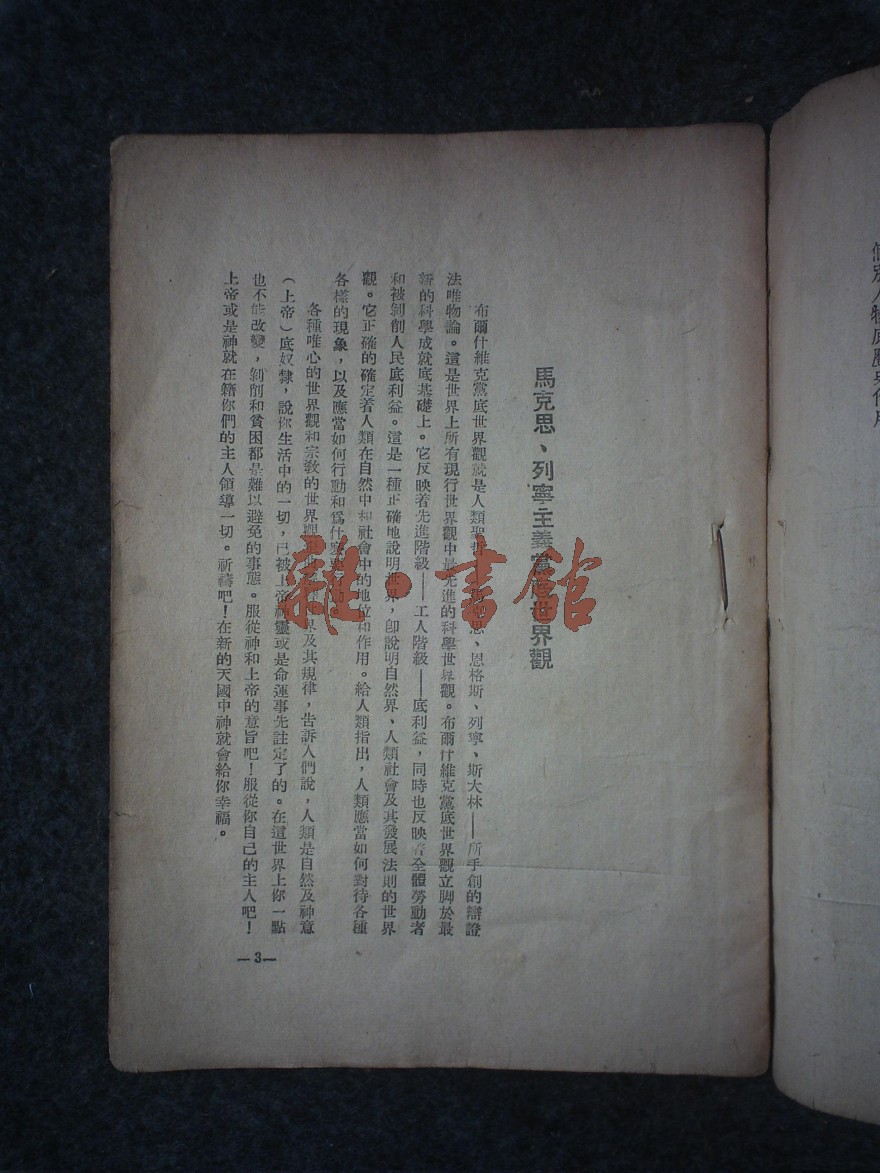 馬克思、列寧主義黨底世界觀
布爾什維克黨底世界觀就是人類聖哲思、恩格斯、列寧、斯大林——所手創的辯證
法唯物論。這是世界上所有現行世界觀中最先進的科學世界觀。布爾什維克黨底世界觀立脚於最
新的科學成就底基礎上。它反映着先進階級——工人階級——底利益，同時也反映着全體勞動者
和被剝削人民底利益。這是一種正確地說明世界，卽說明自然界、人類社會及其發展法則的世界
觀。它正確的確定着人類在自然中和社會中的地位和作用。給人類指出，人類應當如何對待各種
各樣的現象，以及應當如何行動和爲什麼動。
各種唯心的世界觀和宗敎的世界觀界及其規律，告訴人們說，人類是自然及神意
（上帝）底奴隸，說你生活中的一切，已被上帝神靈或是命運事先註定了的。在這世界上你一點
也不能改變，剝削和貧困都是難以避免的事態。服從神和上帝的意旨吧！服從你自己的主人吧！
上帝或是神就在籍你們的主人領導一切。祈禱吧！在新的天國中神就會給你幸福。
—3—
雜·書館